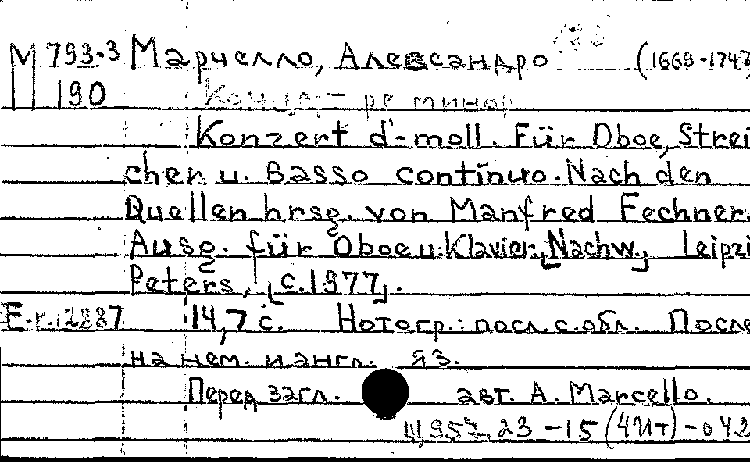 М 793.3 Марчелло, Александро (1669-1747
190 Концерт ре минор
Konzert d-moll. Für Oboe, Strei
cher u. Basso continuo. Nach den
Quellen hrsg. von Manfred Fechner.
Ausg. für Oboe u. Klavier, [Nachw.] Leipzi
Peters, [c.1977].
14,7 с. Нотогр.: посл. с. обл. После
на нем. и англ. яз.
Перед загл. авт. A. Marcello.
23-15(4Ит)-042